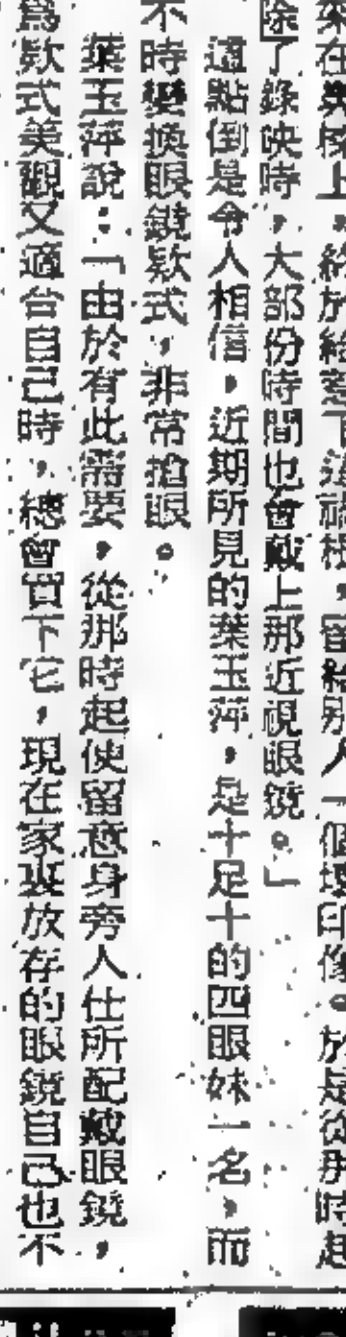 於是從那時起
除了錄映時，大部份時間也會戴上那近視眼鏡。」
這點倒是令人相信，近期所見的葉玉萍，是十足十的四眼妹一名，而
不時變換眼鏡欵式，非常搶眼。
葉玉萍說：「由於有此需要，從那時起便留意身旁人仕所配戴眼鏡，
爲欵式美觀又適合自己時，總會買下它，現在家裏放存的眼鏡自己也不